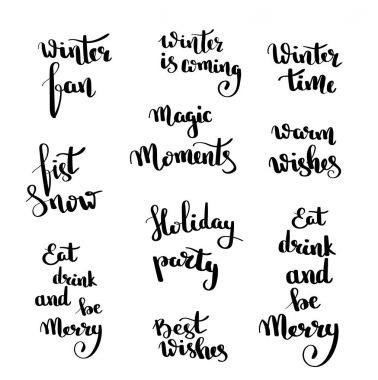 winter
fan
winter
is coming
Winter
time
Magic
Moments
warm
wishes
fist
Snow
Holiday
party
Eat
drink
and
be
Merry
Eat
drink
and be
Merry
Best
wishes